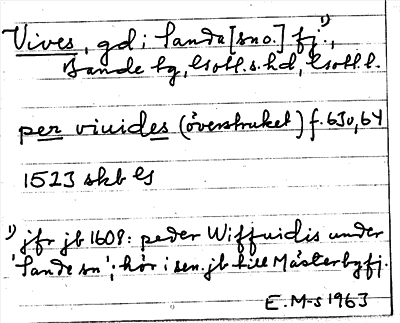 Vives, gd i Sanda [sno.] fj.¹⁾,
Banda tg, Gotl.s.hd, Gotl.l.
per viuides (överstruket) f. 63v, 64
1523 skb Gs
¹⁾ jfr jb 1608: peder Wiffuidis under
'Sande sn'; hör i sen. jb till Mästerby fj.
E. M-s 1963